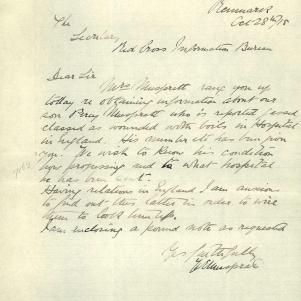 Renmark
Oct 28th/15
The
Secretary
Red Cross Information Bureau
Dear Sir
Mrs Muspratt rang you up
today re obtaining information about our
son Percy Muspratt who is reported
classed as wounded with boils in Hospital
in England. His number etc has been given
you. We wish to know his condition
how progressing and to what hospital
he has been sent.
Having relations in England I am anxious
to find out this latter in order to wire
them to look him up.
I am enclosing a pound note as requested
Yrs faithfully
Muspratt